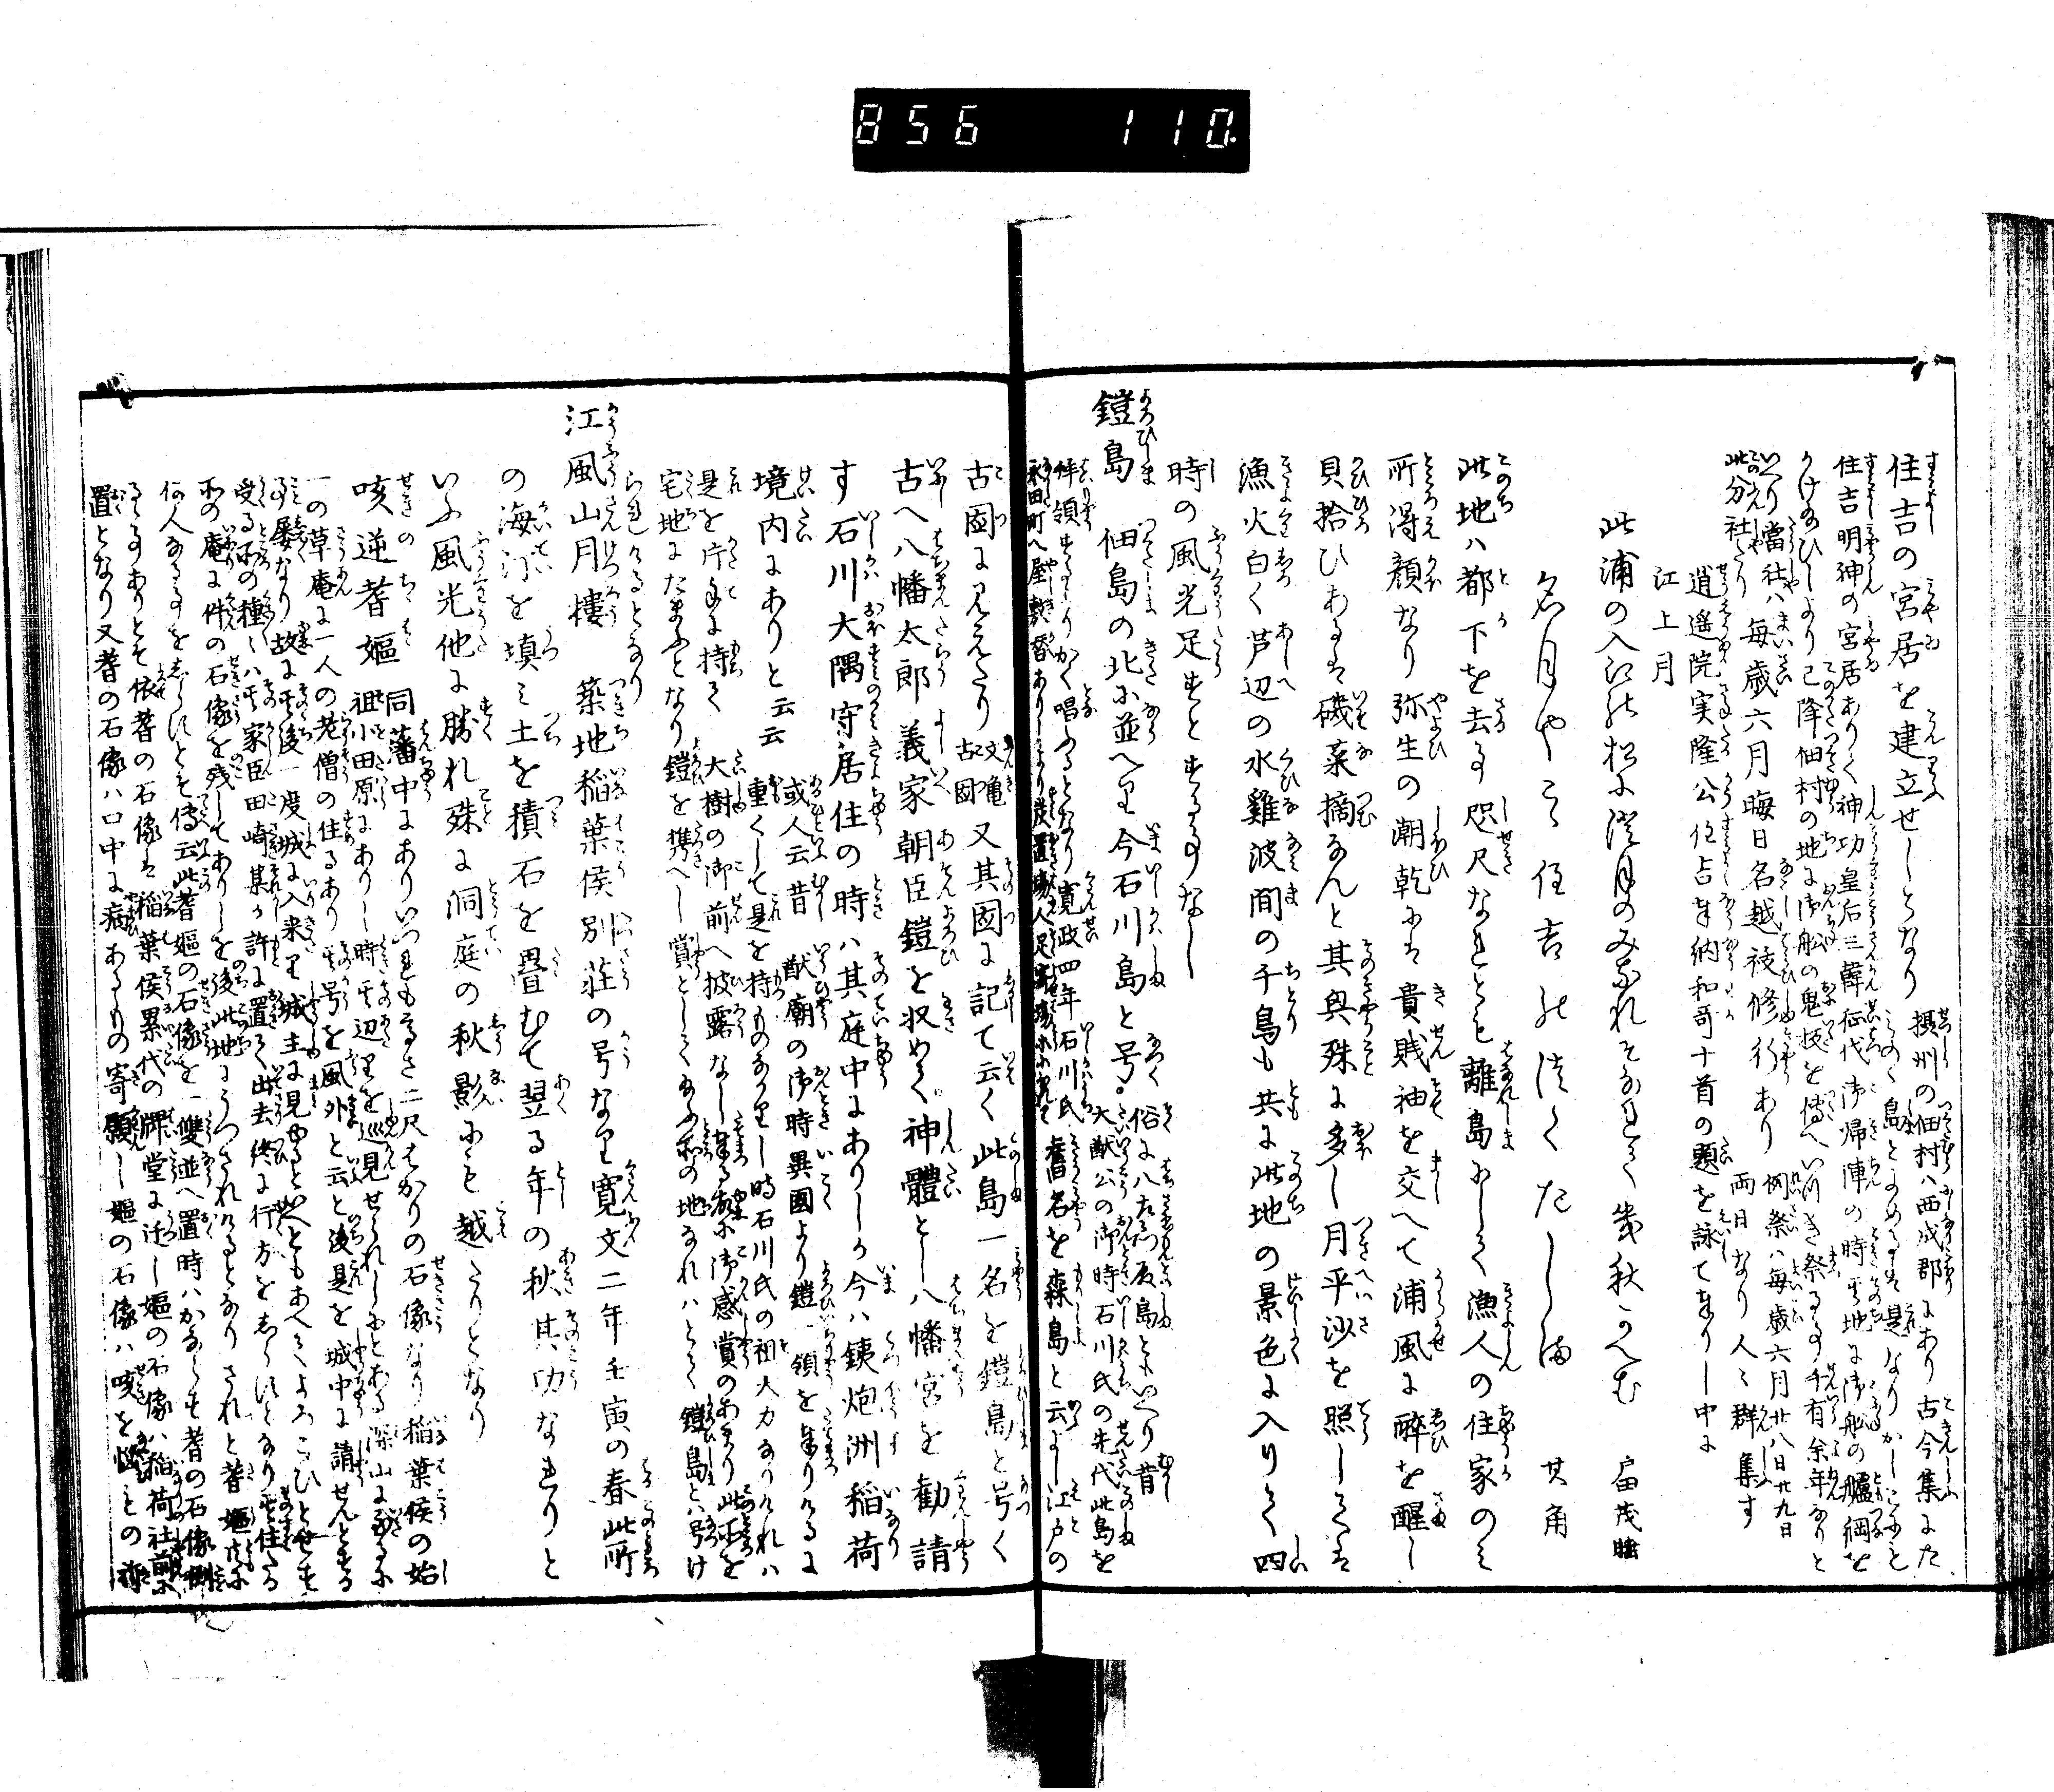 856 110.
住吉の宮居を建立せしとなり 摂州の佃村ハ西成郡にあり古今集にた
みのゝ島とよめるも是なりかしこにも
住吉明神の宮居ありて神功皇后三韓征伐御帰陣の時其地に御船の艫綱を
かけ給ひしより已降佃村の地に御船の鬼板を伝へいつき祭る事千有余年なりと
いへり當社ハ毎歳六月晦日名越祓修行あり 例祭ハ毎歳六月廿八日廿九日
両日なり人々群集す
此分社なり
逍遥院実隆公住吉奉納和哥十首の題を詠て奉りし中に
江上月
此浦の入江の松に澄月のみなれそなれて幾秋かへむ
名月やこゝ住吉のつくたしま 其角
此地ハ都下を去る咫尺なれとも離島にして漁人の住家のミ
所得顔なり弥生の潮乾には貴賎袖を交へて浦風に酔を醒し
貝拾ひあるは磯菜摘なんと其興殊に多し月平沙を照しては
漁火白く芦辺の水雞波間の千鳥も共に此地の景色に入りて四
時の風光足すとする事なし
鎧島 佃島の北に並へり今石川島と号く 俗に八左衛門殿島ともいへり昔
大猷公の御時石川氏の先代此島を
拝領するよりかく唱ふるとなり寛政四年石川氏
永田町へ屋敷替ありしより 舊名を森島と云よし江戸の
古図に見えたり 文亀古図 又其図に記て云く此島一名を鎧島と号く
古へ八幡太郎義家朝臣鎧を収めて神體とし八幡宮を勧請
す石川大隅守居住の時ハ其庭中にありしか今ハ銕炮洲稲荷
境内にありと云云 或人云昔 猷廟の御時異国より鎧一領を奉りけるに
重くして是を持ものなかりし時石川氏の祖大力なりけれハ
是を片手に持て 大樹の御前へ披露なし奉る故に御感賞のあまり此所を
宅地にたまふとなり鎧を携へし賞としてたまふ所の地なれハとて鎧島とハ号け
られけるとなり
江風山月樓 築地稲葉侯別荘の号なり寛文二年壬寅の春此所
の海汀を填ミ土を積石を畳むて翌る年の秋其功なれりと
いふ風光他に勝れ殊に洞庭の秋影にも越たりとなり
咳逆耆嫗 同藩中にありいつれも高さ二尺はかりの石像なり稲葉侯の始
祖小田原にありし時其辺里を巡見せられしにとある深山に
一の草庵に一人の老僧の住るあり其号を風外と云と後是を城中に請せんとする
事屡なり故に其後一度城に入来り城主に見ゆるといへともあへてよろこひとせす
受る所の種々ハ其家臣田崎某か許に置て出去終に行方をしらすとなり其住たる
所の庵に件の石像を残してありしを後此地にうつされけるとなりされと耆嫗共に
何人なる事をしらすとそ傳云此耆嫗の石像を一雙並へ置時ハかならす耆の石像倒
るゝ事ありとそ依耆の石像は稲葉侯累代の牌堂に迁し嫗の石像ハ稲荷社前に
置となり又耆の石像ハ口中に病あるもの寄願し嫗の石像ハ咳を